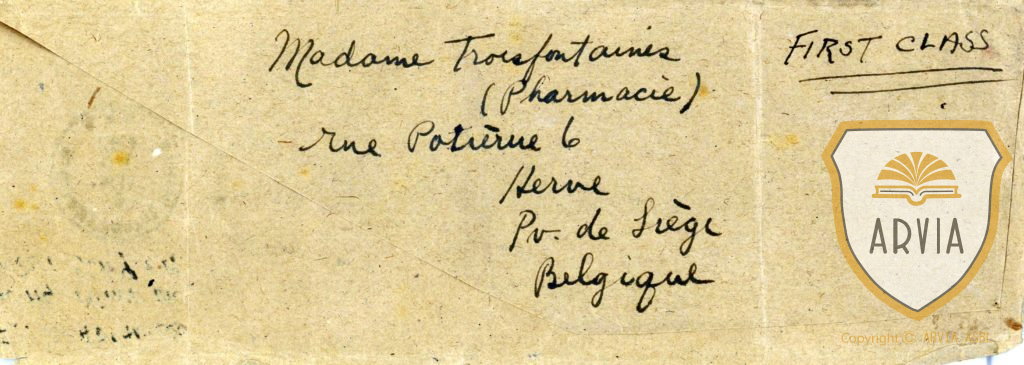 Madame Troisfontaines
(Pharmacie)
rue Potièrue 6
Herve
Pv. de Liège
Belgique
FIRST CLASS
ARVIA
Copyright © ARVIA